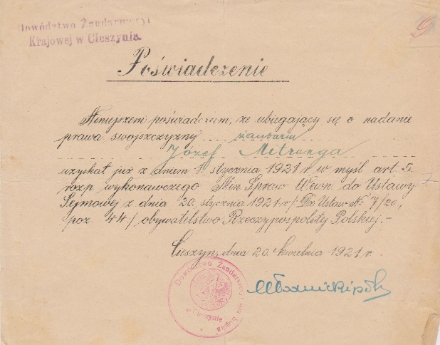 Dowództwo Żandarmerji
Krajowej w Cieszynie.
Poświadczenie
Niniejszem poświadczam, że ubiegający się o nadanie
prawa swojszczyzny żandarm
Józef
uzyskał już z dniem 1 stycznia 1921 r w myśl art. 5.
rozp wykonawczego Min. Spraw Wewn. do Ustawy
Sejmowej z dnia 20. stycznia 1921 r/ Dz. Ustaw Nr. 7/20,
poz 44/ obywatelstwo Rzeczypospolitej Polskiej.-
Cieszyn, dnia 20. kwietnia 1921 r.